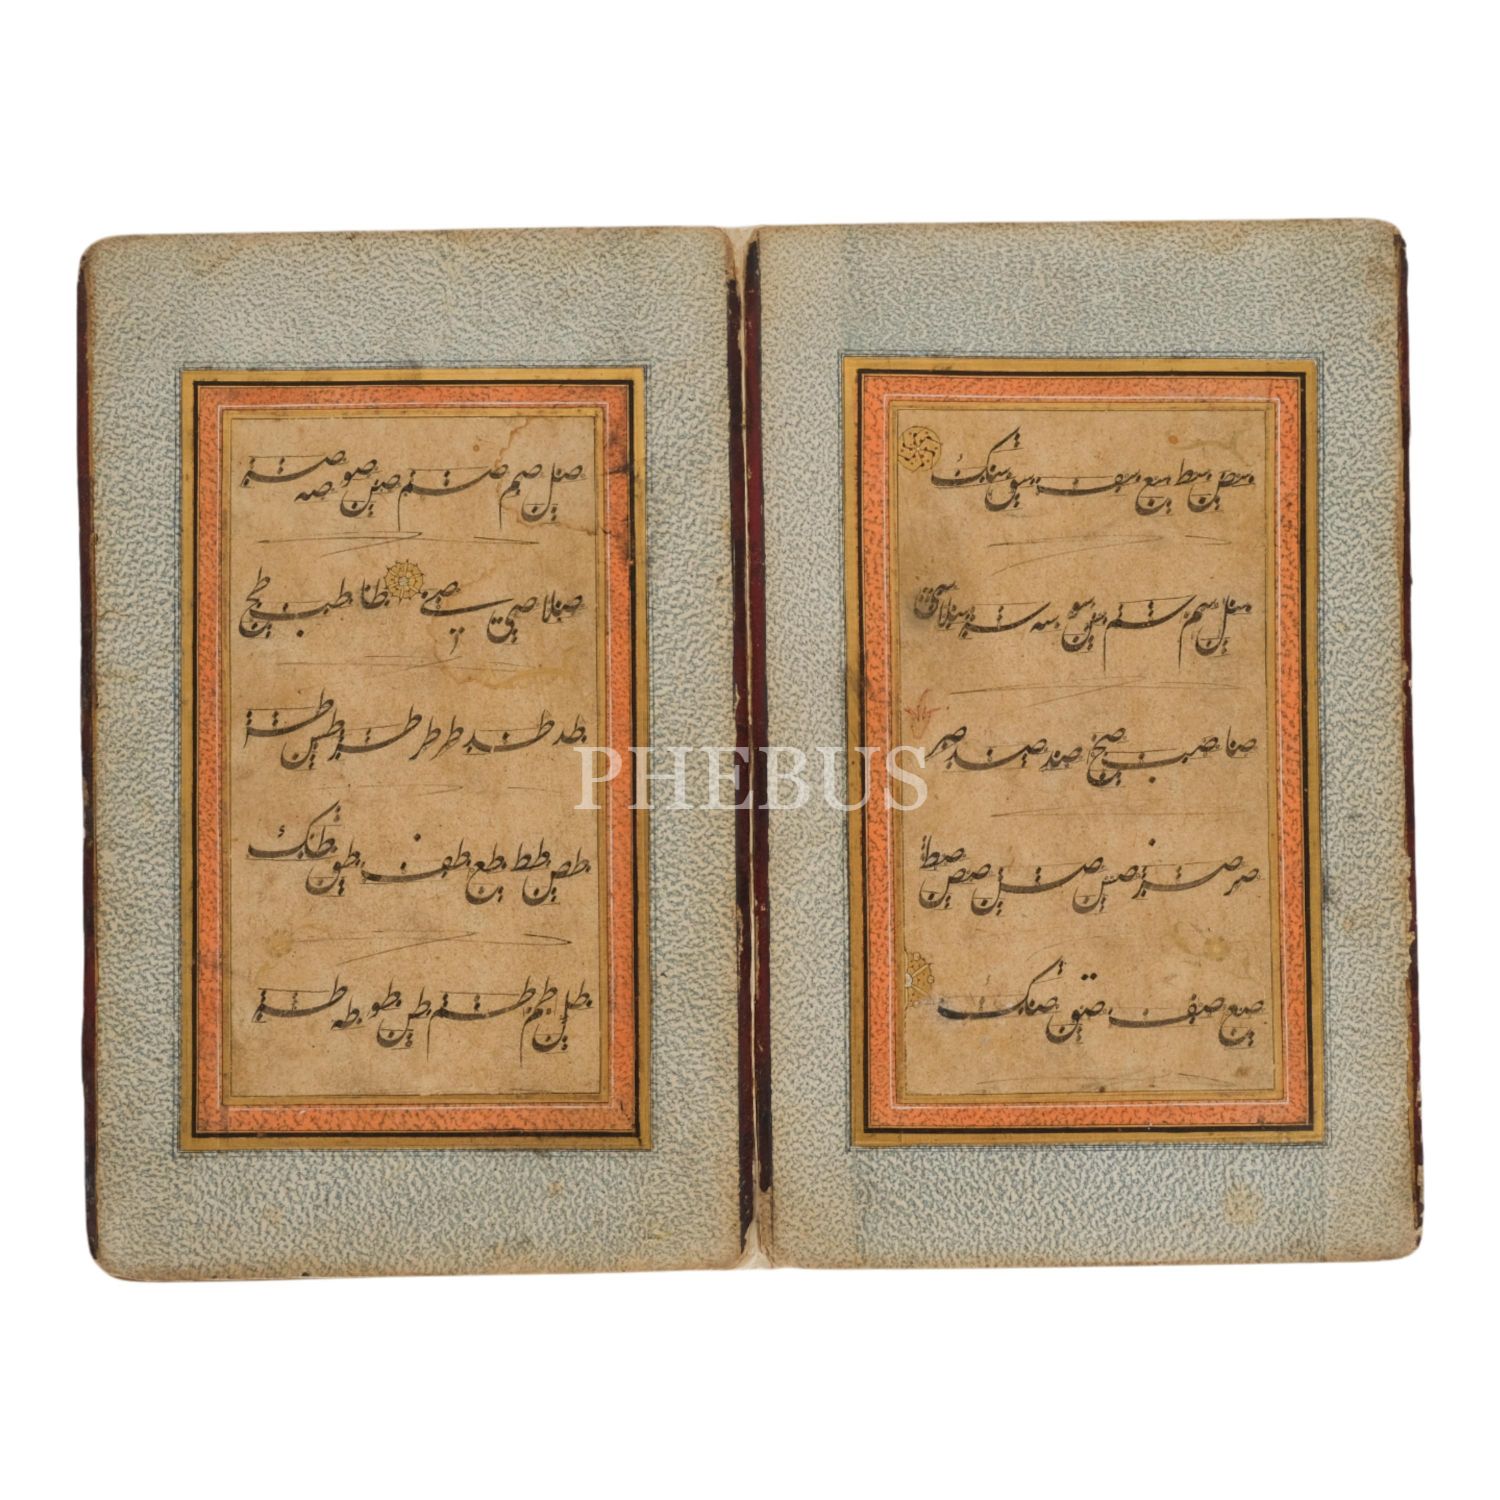 سص سط سع سف سق سک
سل سم سم سن سو سه سه سلا سی
صا صب صج صد صد صر
صر صس صص صط
صع صف صق صک
صل صم صم صن صو صه صه
صلا صی صے طا طب طج
طد طد طر طر طس
طص طط طع طف طق طک
طل طم طم طن طو طه طه
PHEBUS